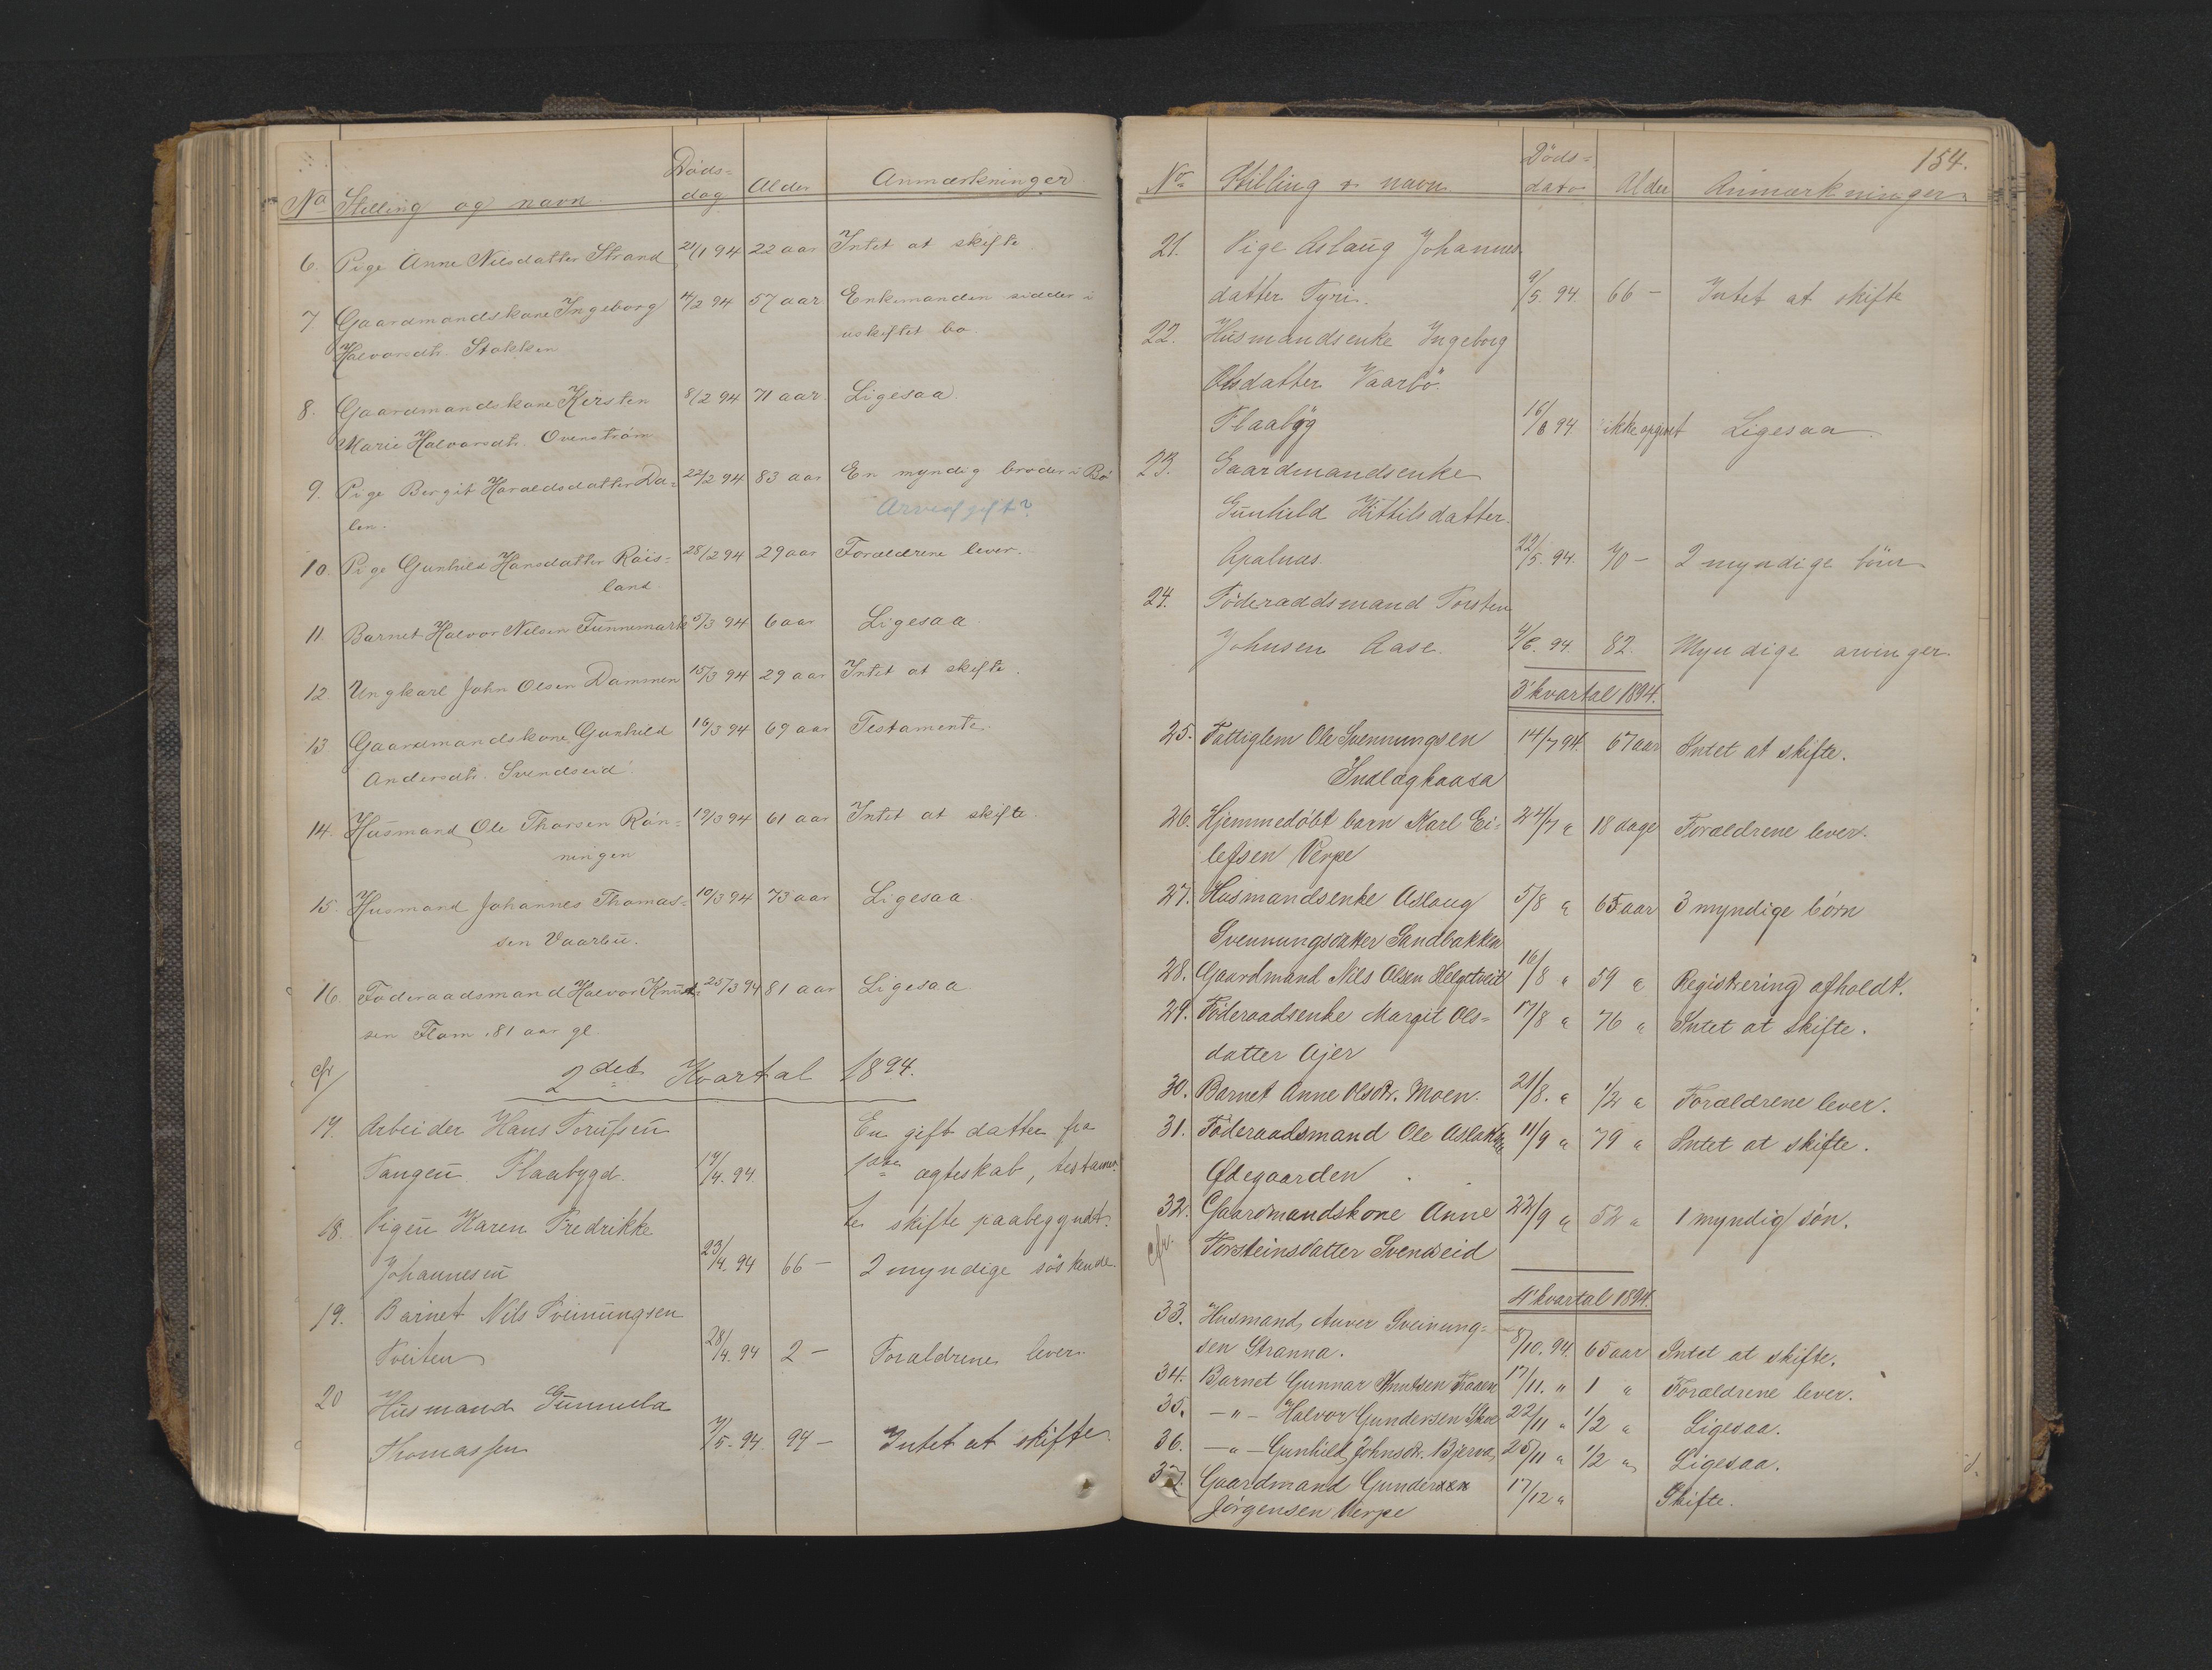 No Stilling og navn. Döds- dag Alder Anmærkninger
6. Pige Anne Nilsdatter Strand 21/1 94 22 aar Intet at skifte.
7 Gaardmandskone Ingeborg 4/2 94 57 aar Enkemanden sidder i
Halvorsdtr. Stokken uskiftet bo.
8. Gaardmandskone Kirsten 8/2 94 71 aar. Ligesaa.
Marie Halvorsdtr. Ovenström
9. Pige Bergit Haraldsdatter Da- 22/2 94 83 aar En myndig broder i Bö
len. Arveafgift?
10. Pige Gunhild Hansdatter Röis- 28/2 94 29 aar Forældrene lever.
land.
11. Barnet Halvor Nilsen Funnemark 5/3 94 6 aar Ligesaa
12. Ungkarl John Olsen Dammen 15/3 94 29 aar Intet at skifte.
13 Gaardmandskone Gunhild 16/3 94 69 aar Testamente.
Andersdtr. Svendseid.
14. Husmand Ole Thorsen Rön- 19/3 94 61 aar Intet at skifte.
ningen
15. Husmand Johannes Thomas- 10/3 94 73 aar Ligesaa.
sen Vaarbu.
16. Föderaadsmand Halvor Knud- 25/3 94 81 aar Ligesaa
sen Flom. 81 aar gl.
cfr 2det Kvartal 1894.
17. Arbeider Hans En gift datter fra
Tangen Flaabygd. 14/4. 94. 1ste ægteskab, testamen-
te skifte paabegyndt.
18. Pigen Karen Fredrikke
Johannesen 23/4. 94 66 — 2 myndige söskende.
19. Barnet Nils Sveinungsen
Tveiten 28/4. 94 2 — Forældrene lever.
20 Husmand Gunnula
Thomassen 7/5. 94. 94 — Intet at skifte
154.
No Stilling & navn Döds- dato Alder Anmærkninger.
21. Pige Aslaug Johannes
datter Tyri. 9/5. 94. 66 — Intet at skifte
22. Husmandsenke Ingeborg
Olsdatter Vaarbö.
Flaabyg 16/6 94 ikke opgivet Ligesaa.
23. Gaardmandsenke
Gunhild Kittilsdatter.
Apalnes. 22/5. 94. 70 — 2 myndige börn
24. Föderaadsmand Torsten
Johnsen Aase. 4/6. 94. 82. Myndige arvinger
3' kvartal 1894.
25. Fattiglem Ole Svennungsen 14/7 94. 67 aar Intet at skifte.
Indlæghaasa
26. Hjemmedøbt barn Karl Ei- 24/7 " 18 dage Forældrene lever.
lefsen Verpe
27. Husmandsenke Aslaug 5/8 " 65 aar 3 myndige børn
Svennungsdatter Sandbakken
28. Gaardmand Nils Olsen Helgetveit 16/8 " 59 " Registrering afholdt.
29. Føderaadsenke Margit Ols- 17/8 " 76 " Intet at skifte.
datter Ajer
30. Barnet Anne Olsdtr. Moen. 21/8. " 1/2 " Forældrene lever.
31. Føderaadsmand Ole Aslaksen 11/9 " 79 " Intet at skifte.
Ødegaarden
32. Gaardmandskone Anne 22/9 " 52 " 1 myndig søn.
cfr. Torsteinsdatter Svendseid
4' kvartal 1894.
33. Husmand Anver Sveinung-
sen Stranna. 8/10. 94. 65 aar Intet at skifte.
34. Barnet Gunnar Knutsen Traaen 17/11. " 1 " Forældrene lever.
35. —"— Halvor Gundersen Skoe 22/11 " 1/2 " Ligesaa.
36. —"— Gunhild Johnsdtr. Bjerva 25/11 " 1/2 " Ligesaa.
37. Gaardmand Gunder 17/12 " Skifte.
Jørgensen Verpe